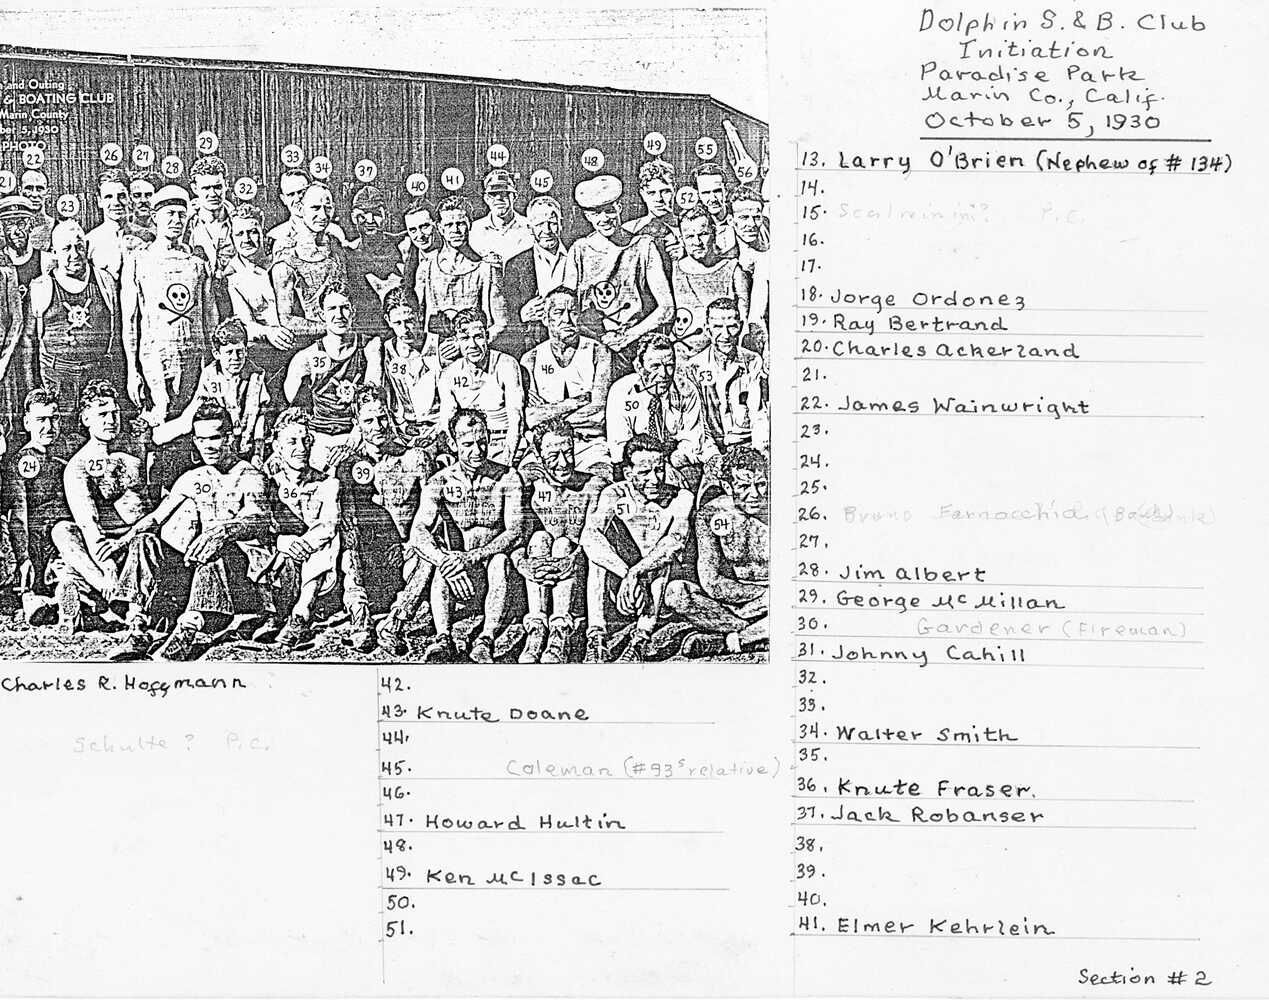 e and Outing
& BOATING CLUB
Marin County
ber 5, 1930
PHOTO
21
22
23
26
27
28
29
32
33
34
37
40
41
44
45
48
49
52
55
56
31
35
38
42
46
50
53
24
25
30
36
39
43
47
51
54
Dolphin S. & B. Club
Initiation
Paradise Park
Marin Co., Calif.
October 5, 1930
13. Larry O'Brien (Nephew of # 134)
14.
15. P.C.
16.
17.
18. Jorge Ordonez
19. Ray Bertrand
20. Charles Ackerland
21.
22. James Wainwright
23.
24.
25.
26. Bruno Farnocchia
27.
28. Jim Albert
29. George McMillan
30. Gardener (Fireman)
31. Johnny Cahill
32.
33.
34. Walter Smith
35.
36. Knute Fraser.
37. Jack Robanser
38.
39.
40.
41. Elmer Kehrlein
Charles R. Hoffmann
Schulte ? P.C.
42.
43. Knute Doane
44.
45. Coleman (#93s relative)
46.
47. Howard Hultin
48.
49. Ken McIssac
50.
51.
Section # 2